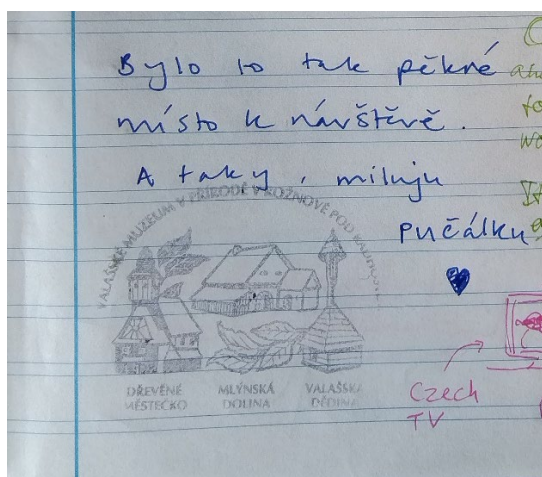 Bylo to tak pěkné
místo k návštěvě.
A taky, miluju
pučálku
VALAŠSKÉ MUZEUM V PŘÍRODĚ V ROŽNOVĚ POD RADHOŠTĚM
DŘEVĚNÉ
MĚSTEČKO
MLÝNSKÁ
DOLINA
VALAŠSKÁ
DĚDINA
Czech
TV